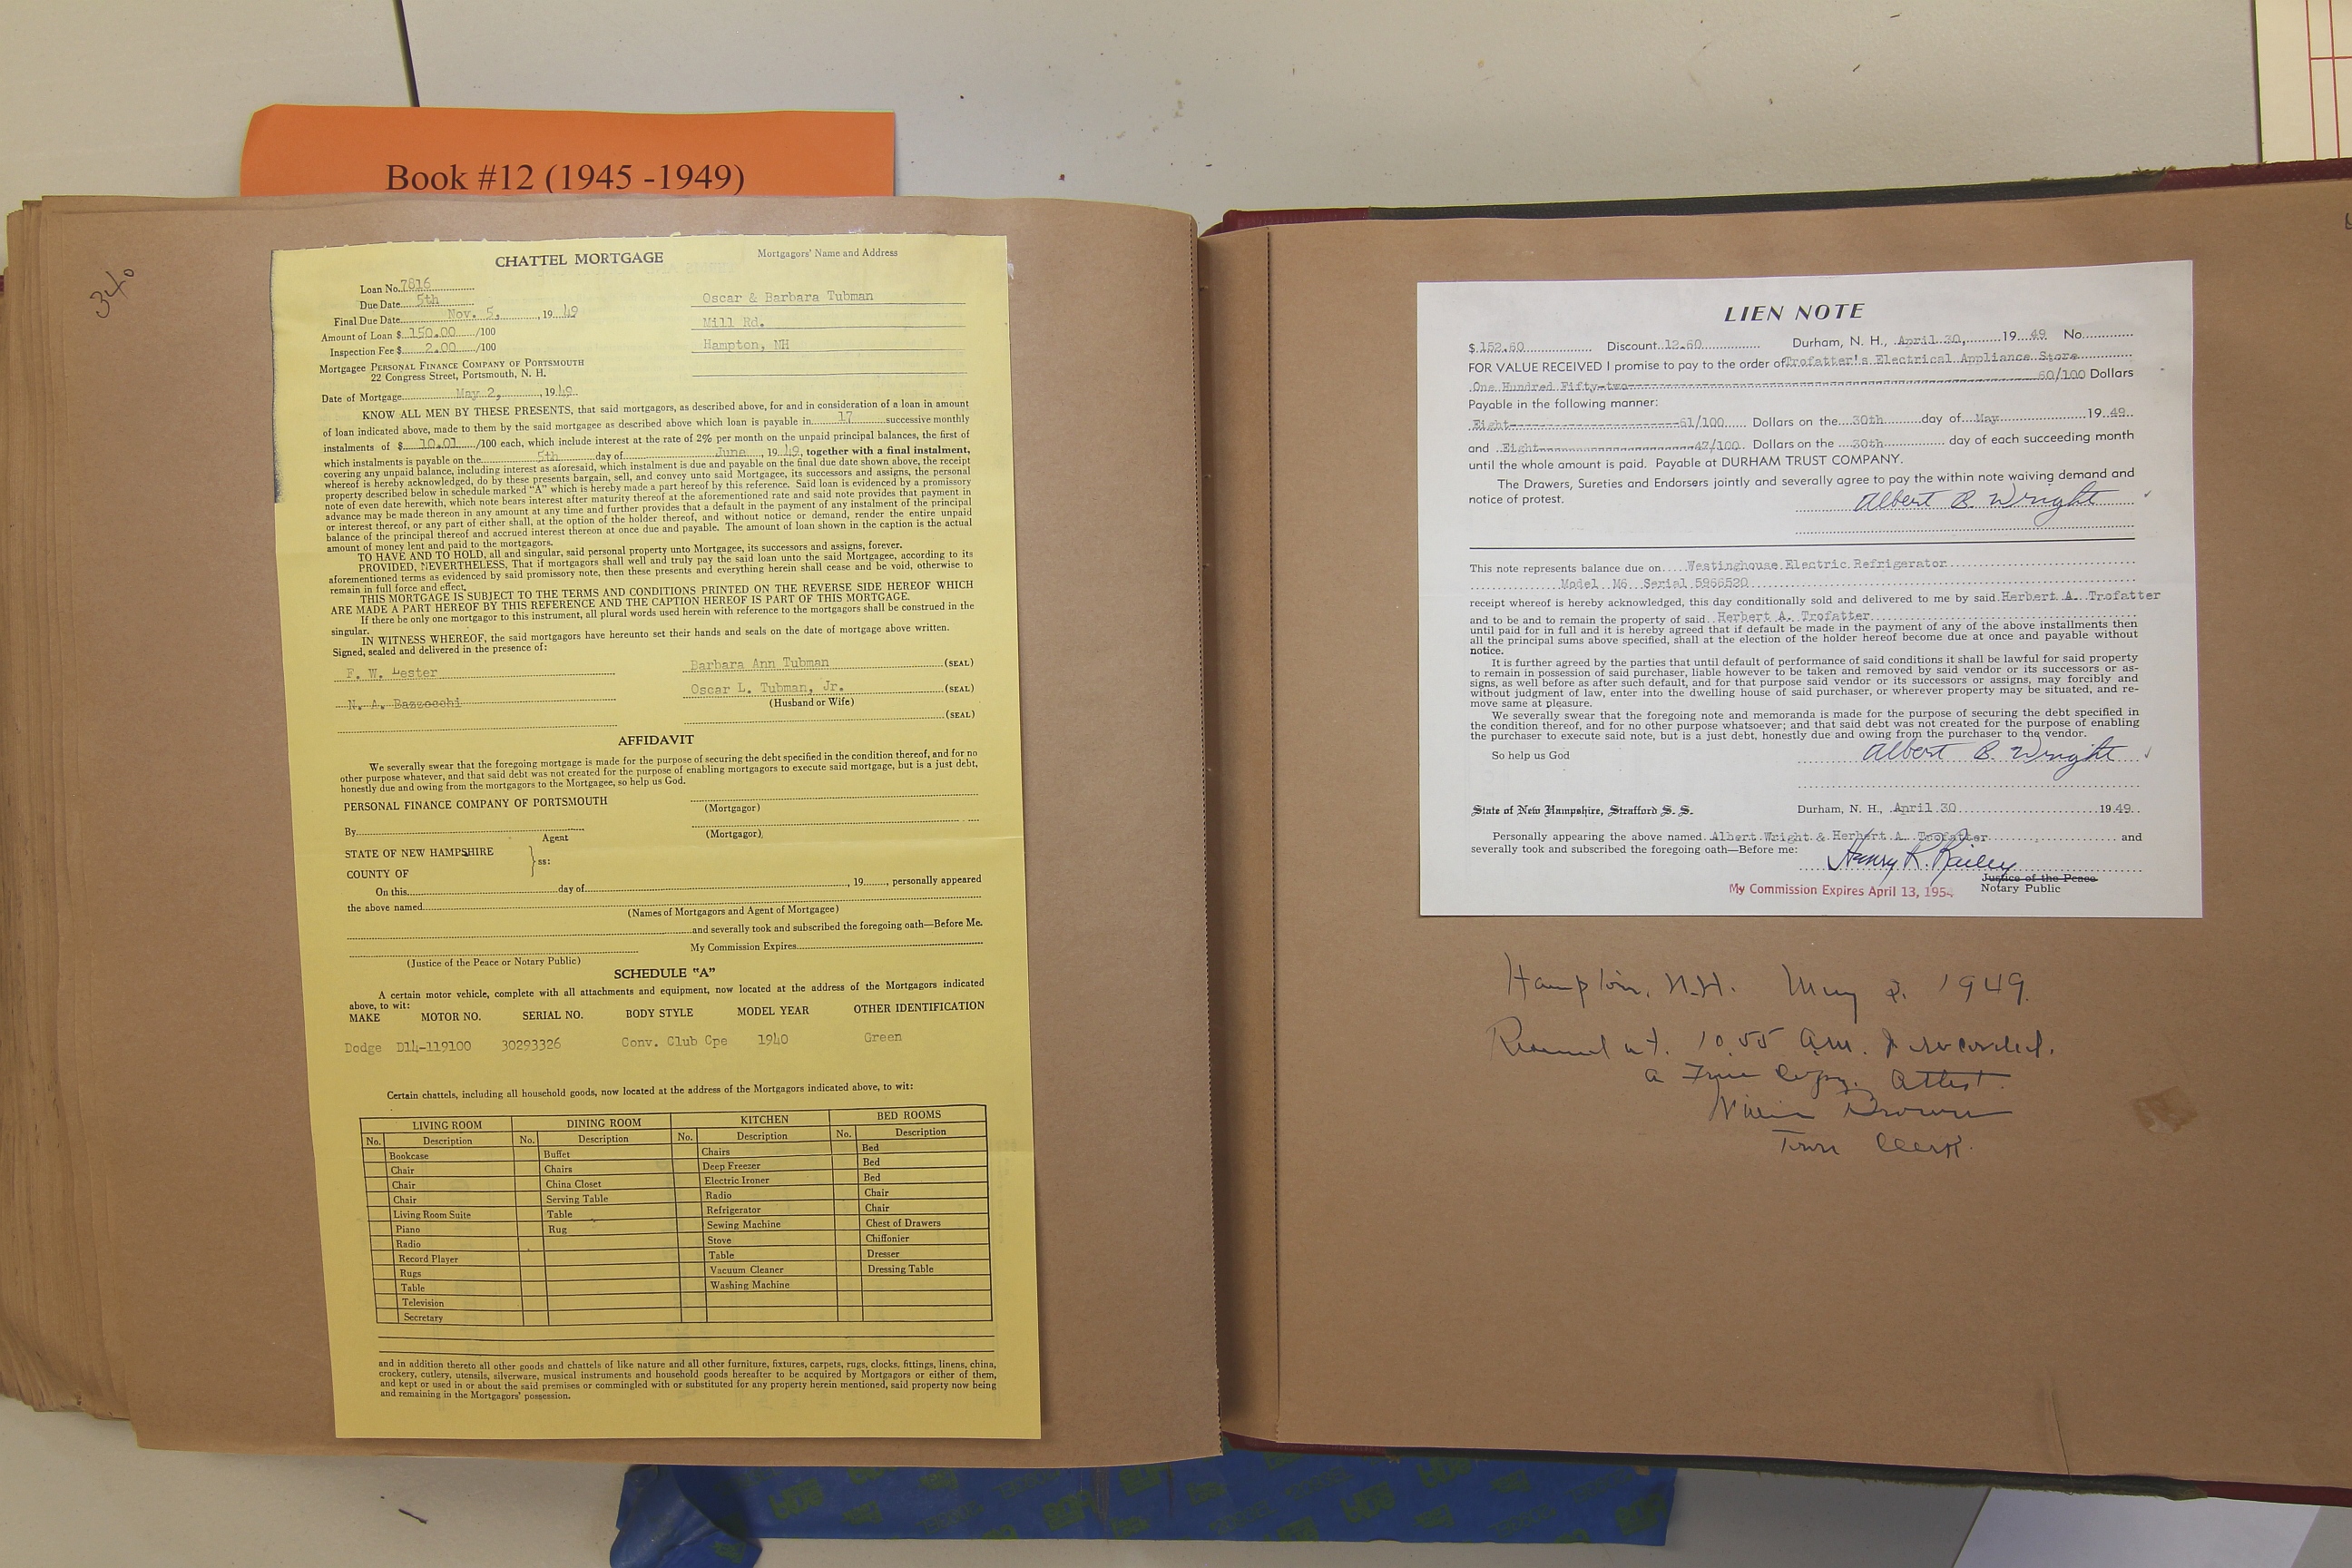 Book #12 (1945 -1949)
340
CHATTEL MORTGAGE
Mortgagors' Name and Address
Loan No. 7816
Due Date 5th
Final Due Date Nov. 5, , 19 49
Amount of Loan $ 150.00 /100
Inspection Fee $ 2.00 /100
Mortgagee PERSONAL FINANCE COMPANY OF PORTSMOUTH
22 Congress Street, Portsmouth, N. H.
Date of Mortgage May 2, , 19 49
Oscar & Barbara Tubman
Mill Rd.
Hampton, NH
KNOW ALL MEN BY THESE PRESENTS, that said mortgagors, as described above, for and in consideration of a loan in amount
of loan indicated above, made to them by the said mortgagee as described above which loan is payable in 17 successive monthly
instalments of $ 10.01 /100 each, which include interest at the rate of 2% per month on the unpaid principal balances, the first of
which instalments is payable on the 5th day of June , 19 49, together with a final instalment,
covering any unpaid balance, including interest as aforesaid, which instalment is due and payable on the final due date shown above, the receipt
whereof is hereby acknowledged, do by these presents bargain, sell, and convey unto said Mortgagee, its successors and assigns, the personal
property described below in schedule marked "A" which is hereby made a part hereof by this reference. Said loan is evidenced by a promissory
note of even date herewith, which note bears interest after maturity thereof at the aforementioned rate and said note provides that payment in
advance may be made thereon in any amount at any time and further provides that a default in the payment of any instalment of the principal
or interest thereof, or any part of either shall, at the option of the holder thereof, and without notice or demand, render the entire unpaid
balance of the principal thereof and accrued interest thereon at once due and payable. The amount of loan shown in the caption is the actual
amount of money lent and paid to the mortgagors.
TO HAVE AND TO HOLD, all and singular, said personal property unto Mortgagee, its successors and assigns, forever.
PROVIDED, NEVERTHELESS, That if mortgagors shall well and truly pay the said loan unto the said Mortgagee, according to its
aforementioned terms as evidenced by said promissory note, then these presents and everything herein shall cease and be void, otherwise to
remain in full force and effect.
THIS MORTGAGE IS SUBJECT TO THE TERMS AND CONDITIONS PRINTED ON THE REVERSE SIDE HEREOF WHICH
ARE MADE A PART HEREOF BY THIS REFERENCE AND THE CAPTION HEREOF IS PART OF THIS MORTGAGE.
If there be only one mortgagor to this instrument, all plural words used herein with reference to the mortgagors shall be construed in the
singular.
IN WITNESS WHEREOF, the said mortgagors have hereunto set their hands and seals on the date of mortgage above written.
Signed, sealed and delivered in the presence of:
F. W. Lester
Barbara Ann Tubman (SEAL)
N. A. Bazzocchi
Oscar L. Tubman, Jr. (SEAL)
(Husband or Wife)
(SEAL)
AFFIDAVIT
We severally swear that the foregoing mortgage is made for the purpose of securing the debt specified in the condition thereof, and for no
other purpose whatever, and that said debt was not created for the purpose of enabling mortgagors to execute said mortgage, but is a just debt,
honestly due and owing from the mortgagors to the Mortgagee, so help us God.
PERSONAL FINANCE COMPANY OF PORTSMOUTH
(Mortgagor)
By
Agent
(Mortgagor)
STATE OF NEW HAMPSHIRE
ss:
COUNTY OF
On this day of , 19 , personally appeared
the above named
(Names of Mortgagors and Agent of Mortgagee)
and severally took and subscribed the foregoing oath—Before Me.
My Commission Expires
(Justice of the Peace or Notary Public)
SCHEDULE "A"
A certain motor vehicle, complete with all attachments and equipment, now located at the address of the Mortgagors indicated
above, to wit:
MAKE MOTOR NO. SERIAL NO. BODY STYLE MODEL YEAR OTHER IDENTIFICATION
Dodge D14-119100 30293326 Conv. Club Cpe 1940 Green
Certain chattels, including all household goods, now located at the address of the Mortgagors indicated above, to wit:
LIVING ROOM DINING ROOM KITCHEN BED ROOMS
No. Description No. Description No. Description No. Description
Bookcase Buffet Chairs Bed
Chair Chairs Deep Freezer Bed
Chair China Closet Electric Ironer Bed
Chair Serving Table Radio Chair
Living Room Suite Table Refrigerator Chair
Piano Rug Sewing Machine Chest of Drawers
Radio Stove Chiffonier
Record Player Table Dresser
Rugs Vacuum Cleaner Dressing Table
Table Washing Machine
Television
Secretary
and in addition thereto all other goods and chattels of like nature and all other furniture, fixtures, carpets, rugs, clocks, fittings, linens, china,
crockery, cutlery, utensils, silverware, musical instruments and household goods hereafter to be acquired by Mortgagors or either of them,
and kept or used in or about the said premises or commingled with or substituted for any property herein mentioned, said property now being
and remaining in the Mortgagors' possession.
LIEN NOTE
$ 152.60 Discount 12.60 Durham, N. H., April 30, 19 49 No.
FOR VALUE RECEIVED I promise to pay to the order of Trofatter's Electrical Appliance Store
One Hundred Fifty-two 60/100 Dollars
Payable in the following manner:
Eight 61/100 Dollars on the 30th day of May 19 49
and Eight 47/100 Dollars on the 30th day of each succeeding month
until the whole amount is paid. Payable at DURHAM TRUST COMPANY.
The Drawers, Sureties and Endorsers jointly and severally agree to pay the within note waiving demand and
notice of protest.
Albert B. Wright
This note represents balance due on Westinghouse Electric Refrigerator
Model M6 Serial 5966520
receipt whereof is hereby acknowledged, this day conditionally sold and delivered to me by said Herbert A. Trofatter
and to be and to remain the property of said Herbert A. Trofatter
until paid for in full and it is hereby agreed that if default be made in the payment of any of the above installments then
all the principal sums above specified, shall at the election of the holder hereof become due at once and payable without
notice.
It is further agreed by the parties that until default of performance of said conditions it shall be lawful for said property
to remain in possession of said purchaser, liable however to be taken and removed by said vendor or its successors or as-
signs, as well before as after such default, and for that purpose said vendor or its successors or assigns, may forcibly and
without judgment of law, enter into the dwelling house of said purchaser, or wherever property may be situated, and re-
move same at pleasure.
We severally swear that the foregoing note and memoranda is made for the purpose of securing the debt specified in
the condition thereof, and for no other purpose whatsoever; and that said debt was not created for the purpose of enabling
the purchaser to execute said note, but is a just debt, honestly due and owing from the purchaser to the vendor.
So help us God
Albert B. Wright
State of New Hampshire, Strafford S. S. Durham, N. H., April 30 19 49
Personally appearing the above named Albert Wright & Herbert A. Trofatter and
severally took and subscribed the foregoing oath—Before me:
Henry R. Bailey
Justice of the Peace
My Commission Expires April 13, 1954 Notary Public
Hampton, N.H. May 2, 1949.
Received at 10.55 A.M. & recorded.
a True Copy. Attest.
William Brown
Town Clerk.